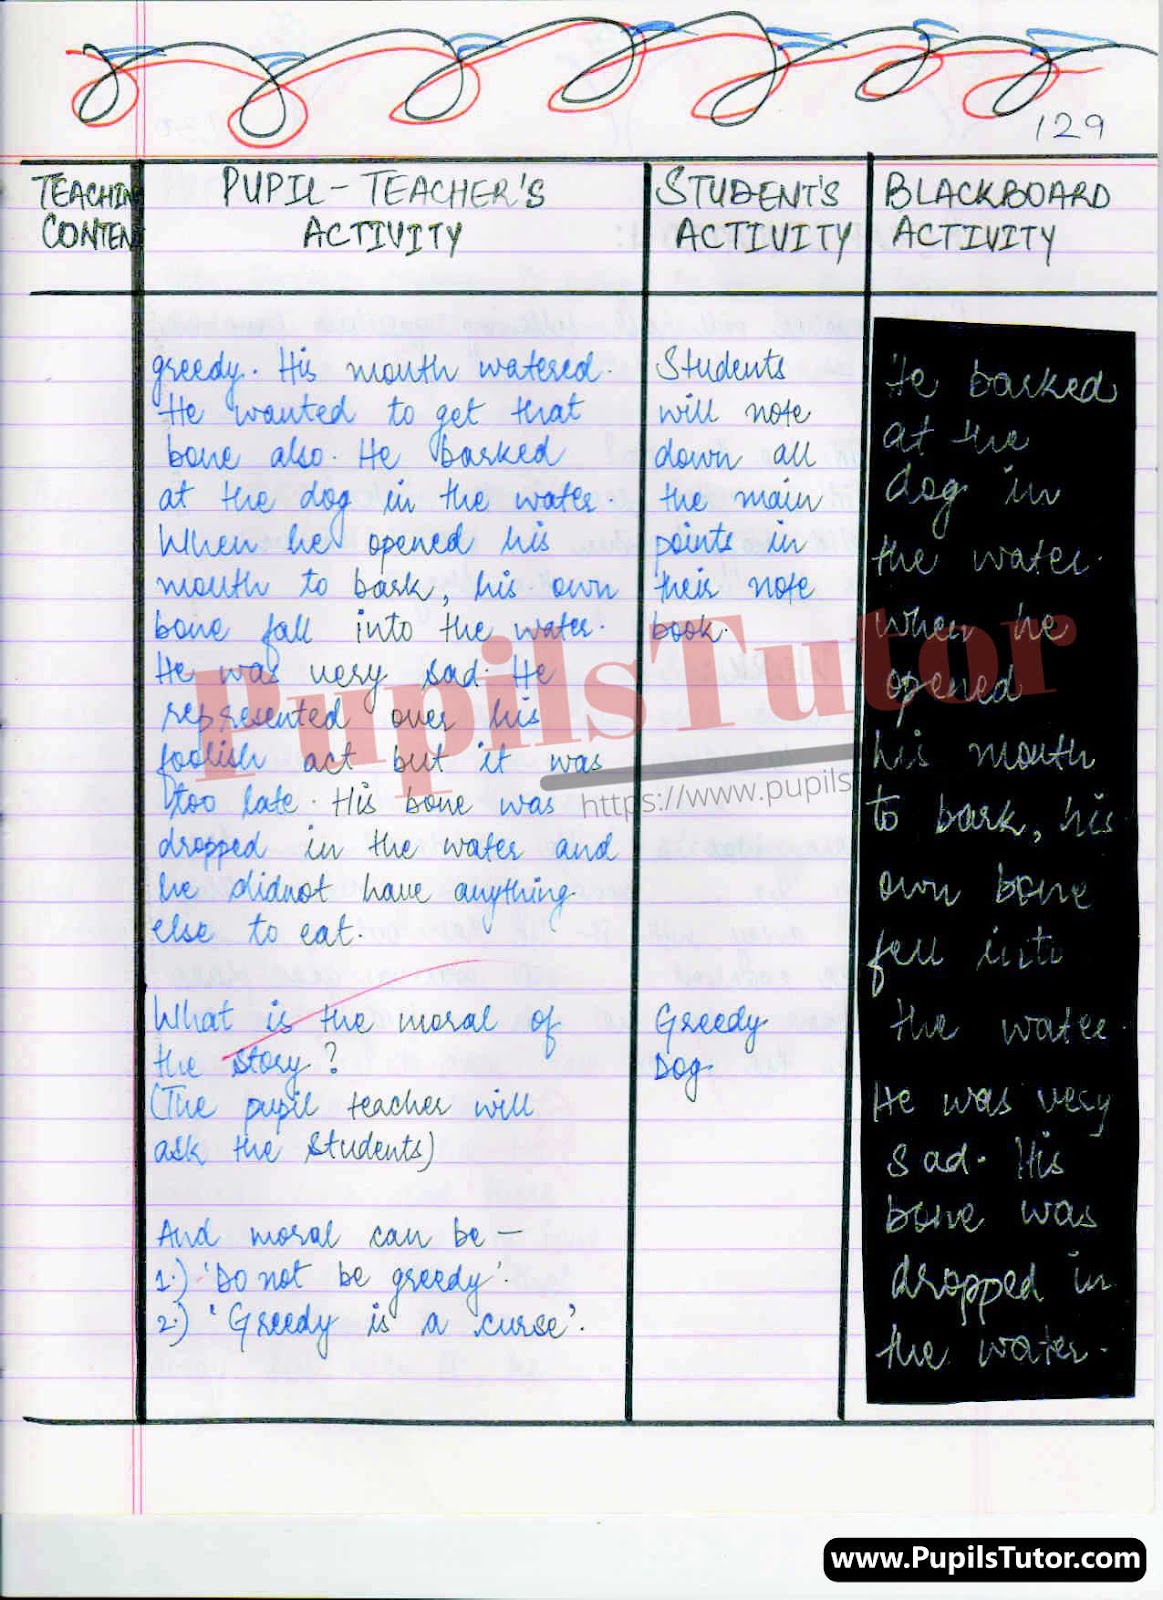 129
TEACHING
CONTENT
PUPIL-TEACHER'S
ACTIVITY
STUDENT'S
ACTIVITY
BLACKBOARD
ACTIVITY
greedy. His mouth watered.
He wanted to get that
bone also. He barked
at the dog in the water.
When he opened his
mouth to bark, his own
bone fall into the water.
He was very sad. He
represented over his
foolish act but it was
too late. His bone was
dropped in the water and
he didnot have anything
else to eat.
What is the moral of
the story?
(The pupil teacher will
ask the students)
And moral can be —
1.) 'Do not be greedy'.
2.) 'Greedy is a curse'.
Students
will note
down all
the main
points in
their note
book.
Greedy
Dog
He barked
at the
dog in
the water.
When he
opened
his mouth
to bark, his
own bone
fell into
the water.
He was very
sad. His
bone was
dropped in
the water.
PupilsTutor
https://www.pupils
www.PupilsTutor.com